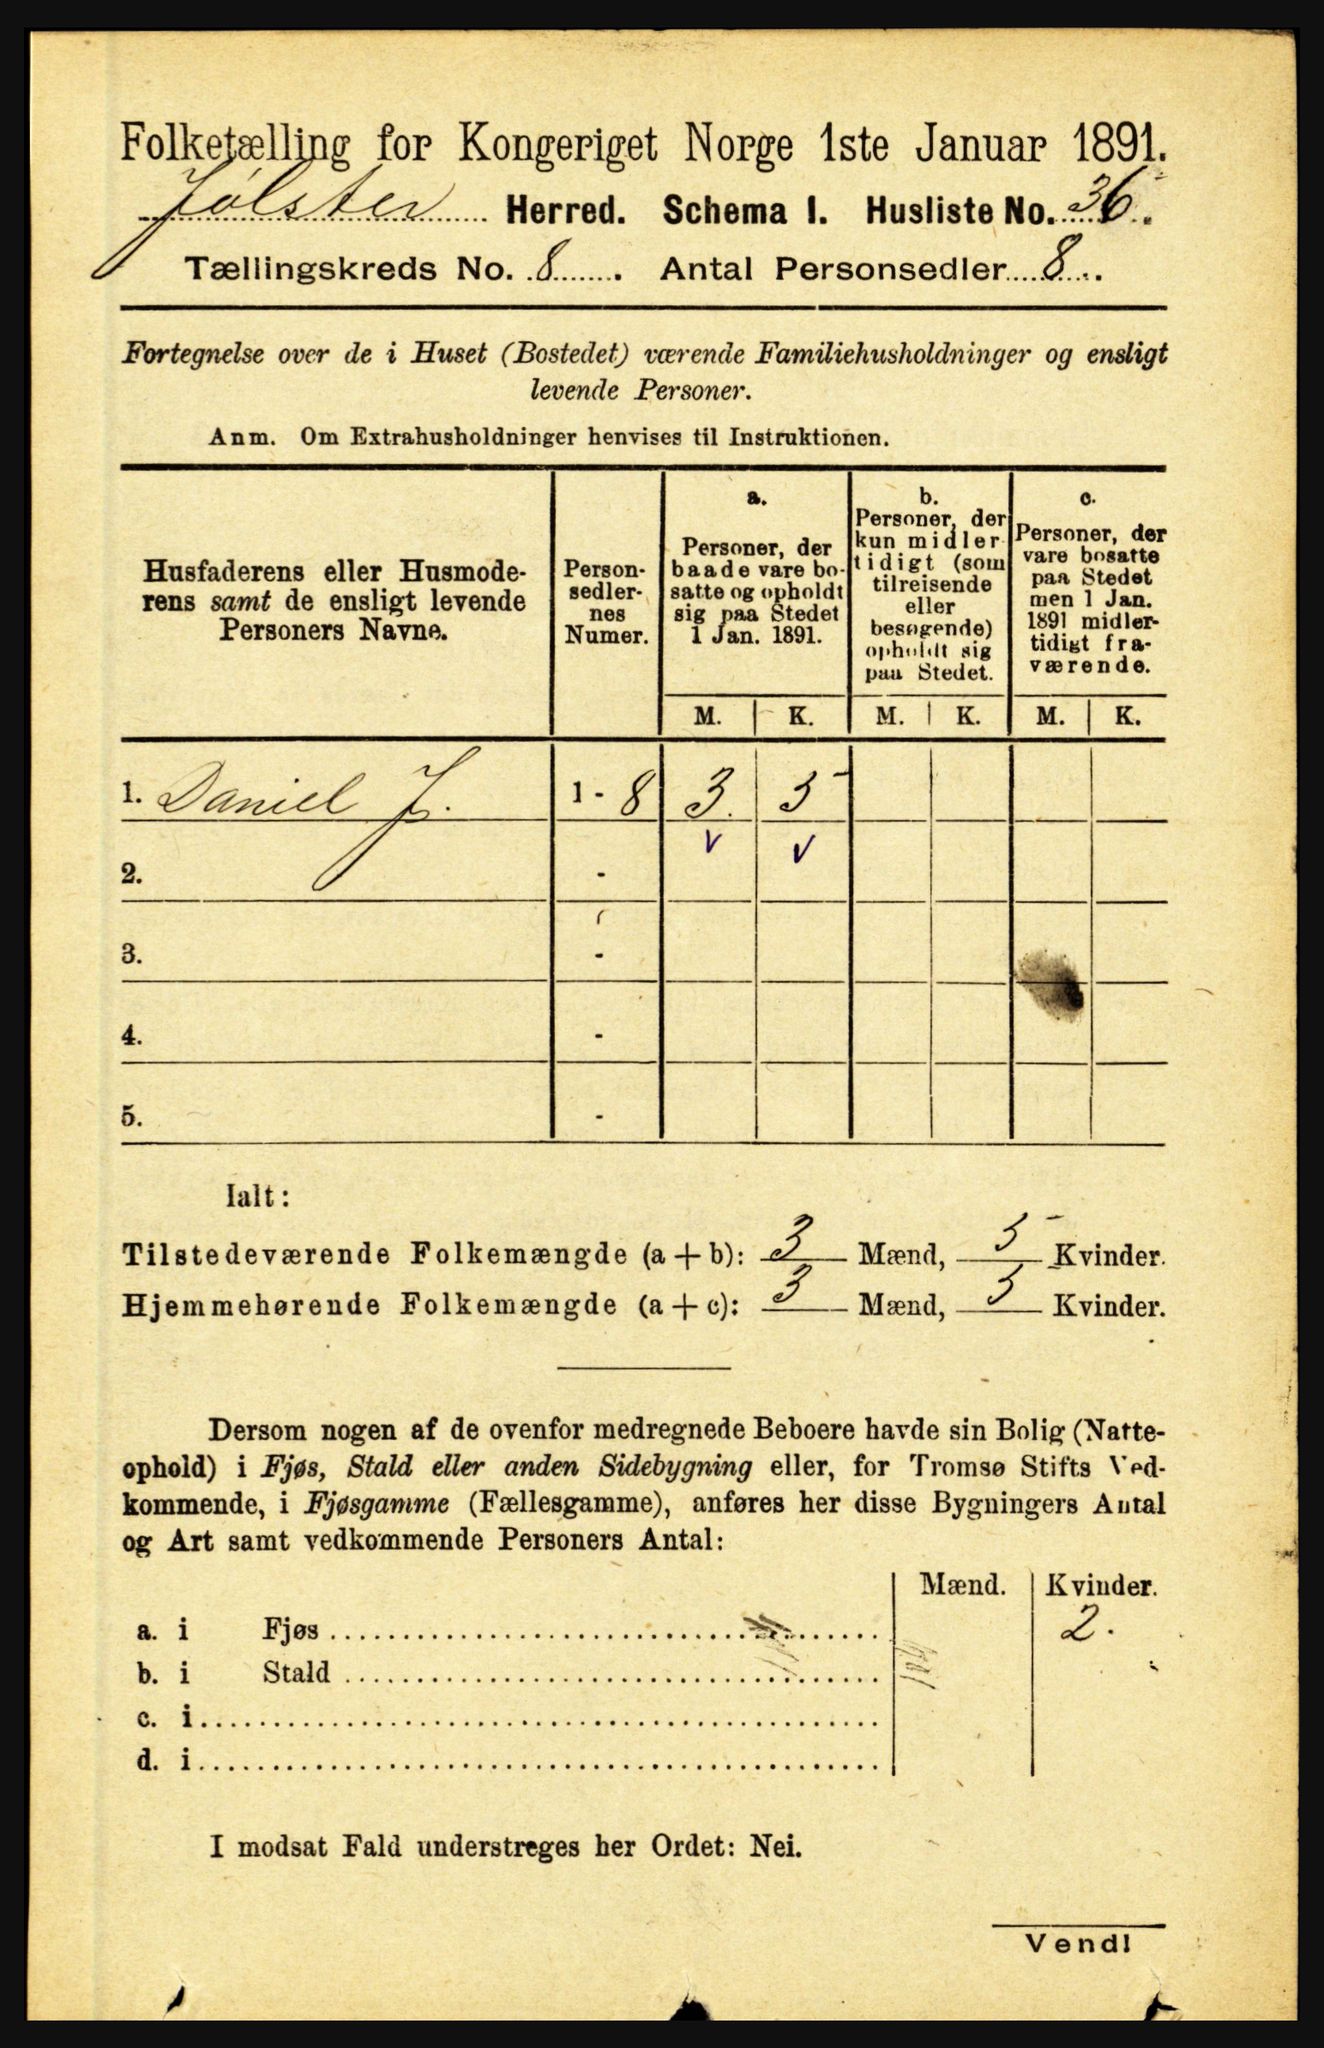 Folketælling for Kongeriget Norge 1ste Januar 1891.
Jølster Herred. Schema I. Husliste No. 36.
Tællingskreds No. 8. Antal Personsedler 8.
Fortegnelse over de i Huset (Bostedet) værende Familiehusholdninger og ensligt
levende Personer.
Anm. Om Extrahusholdninger henvises til Instruktionen.
Husfaderens eller Husmode-
rens samt de ensligt levende
Personers Navne.
Person-
sedler-
nes
Numer.
a.
Personer, der
baade vare bo-
satte og opholdt
sig paa Stedet
1 Jan. 1891.
b.
Personer, der
kun midler-
tidigt (som
tilreisende
eller
besøgende)
opholdt sig
paa Stedet.
c.
Personer, der
vare bosatte
paa Stedet
men 1 Jan.
1891 midler-
tidigt fra-
værende.
M. K. M. K. M. K.
1. Daniel J. 1 - 8 3. 5
2. -
3. -
4. -
5. -
Ialt:
Tilstedeværende Folkemængde (a + b): 3 Mænd, 5 Kvinder.
Hjemmehørende Folkemængde (a + c): 3 Mænd, 5 Kvinder.
Dersom nogen af de ovenfor medregnede Beboere havde sin Bolig (Natte-
ophold) i Fjøs, Stald eller anden Sidebygning eller, for Tromsø Stifts Ved-
kommende, i Fjøsgamme (Fællesgamme), anføres her disse Bygningers Antal
og Art samt vedkommende Personers Antal:
Mænd. Kvinder.
a. i Fjøs 2.
b. i Stald
c. i
d. i
I modsat Fald understreges her Ordet: Nei.
Vend!